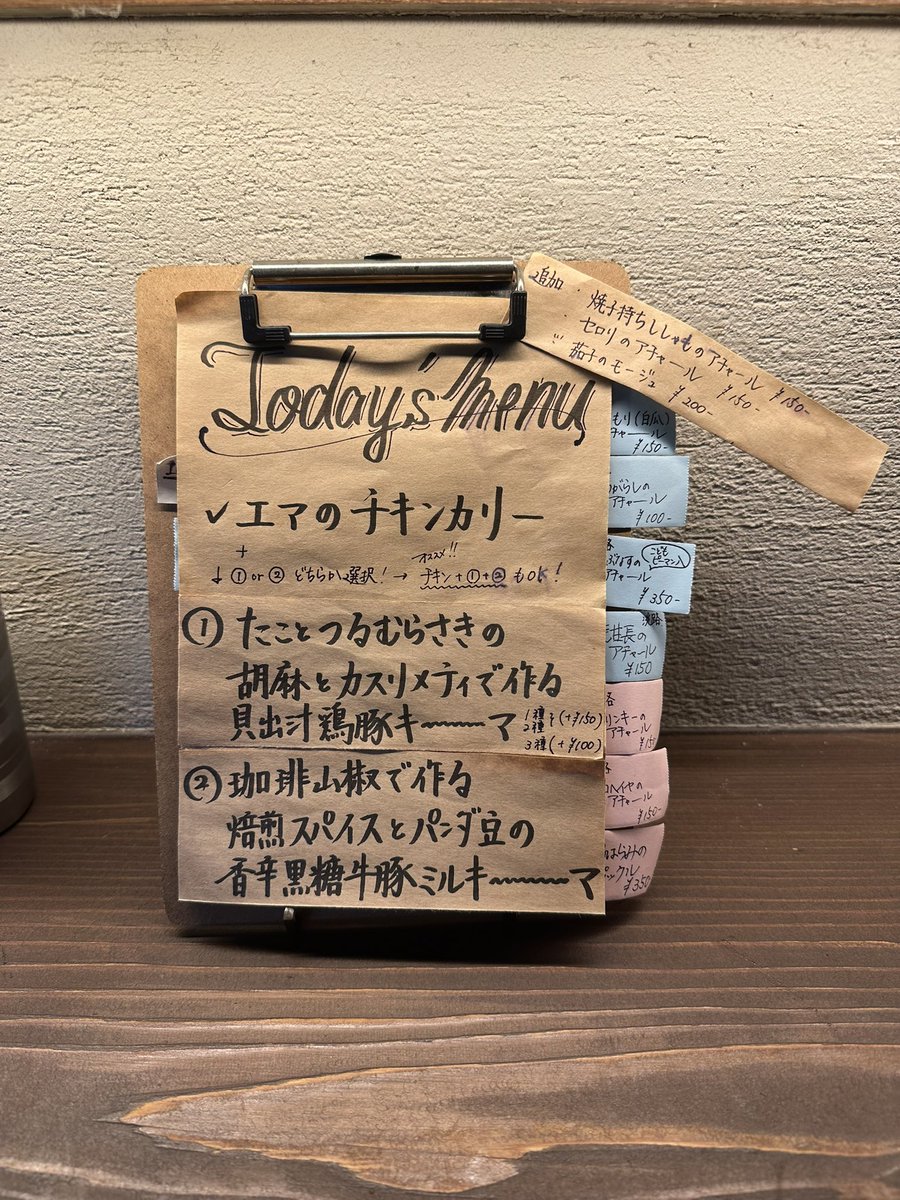 Today's Menu
✓エマのチキンカリー
+
オススメ!!
↓①or②どちらか選択!→チキン+①+②もOK!
①たことつるむらさきの
胡麻とカスリメティで作る
貝出汁鶏豚キ〜〜〜マ
1種
2種
(+¥150)
3種(+¥100)
②珈琲山椒で作る
焙煎スパイスとパンダ豆の
香辛黒糖牛豚ミルキ〜〜〜マ
追加・焼子持ちししゃものアチャール ¥150-
・セロリのアチャール ¥150-
茄子のモージュ ¥200-
もり(白瓜)
チャール
¥150-
がらしの
アチャール
¥100-
こども
ピーマン入
ぶなすの
アチャール
¥350-
淡路
アチャール
¥150
リンキーの
アチャール
¥150-
アチャール
¥150-
はらみの
ックル
¥350